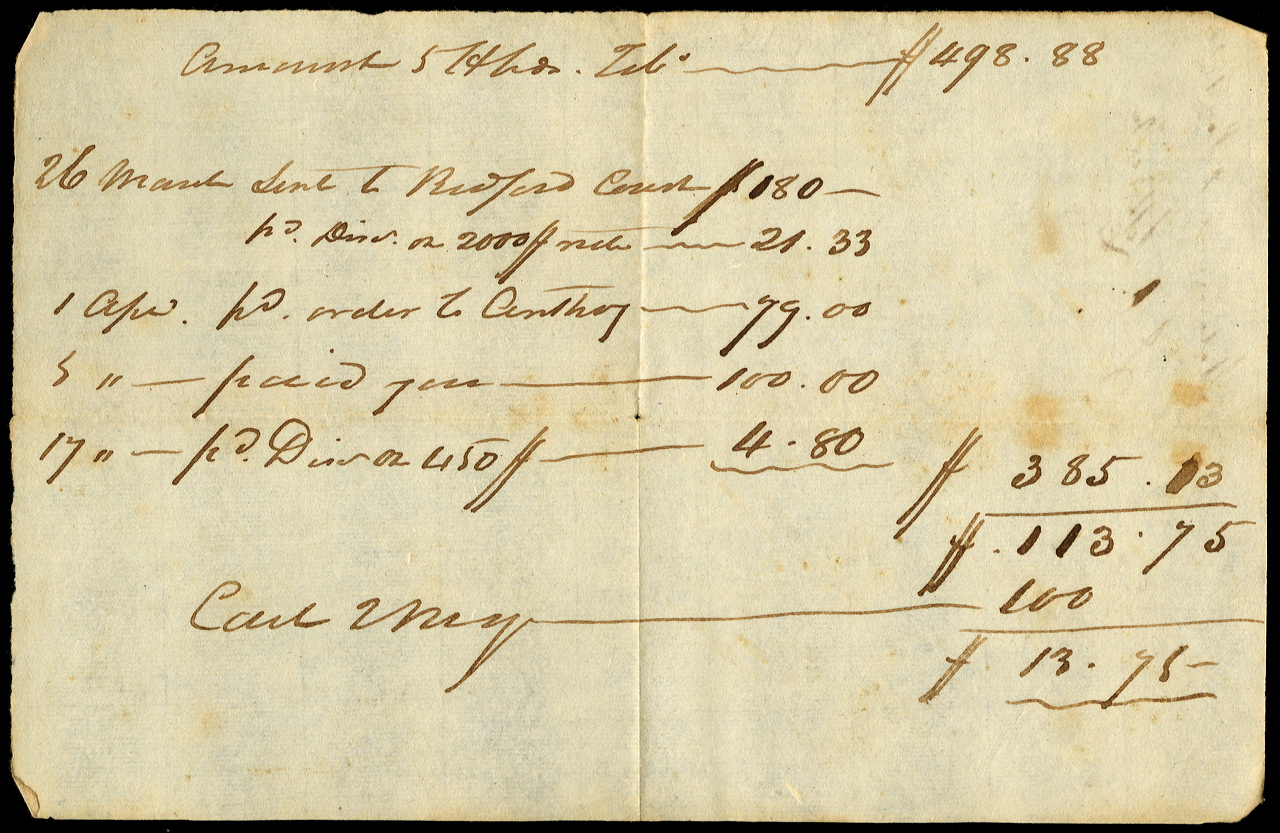 Amount 5 Hhds. Tobo $498.88
26 March Sent to Bedford Court $180
pd. Disc. on 2000$ note 21.33
1 Apr. pd. order to Anthoy 79.00
5 " paid you 100.00
17 " pd. Disc on 450$ 4.80
$ 385.13
$ 113.75
Cash 2 May 100
$ 13.75